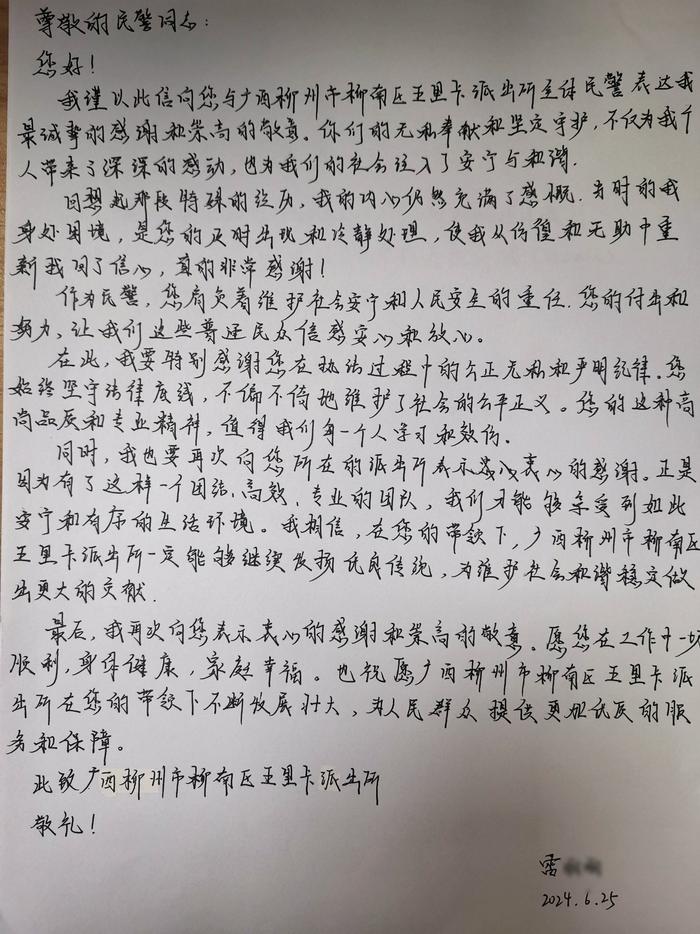 尊敬的民警同志：
您好！
我谨以此信向您与广西柳州市柳南区五里卡派出所全体民警表达我
最诚挚的感谢和崇高的敬意。你们的无私奉献和坚定守护，不仅为我个
人带来了深深的感动，也为我们的社会注入了安宁与和谐.
回想起那段特殊的经历，我的内心仍然充满了感慨.当时的我
身处困境，是您的及时出现和冷静处理，使我从彷徨和无助中重
新找回了信心，真的非常感谢！
作为民警，您肩负着维护社会安宁和人民安全的重任.您的付出和
努力，让我们这些普通民众倍感安心和放心。
在此，我要特别感谢您在执法过程中的公正无私和严明纪律.您
始终坚守法律底线，不偏不倚地维护了社会的公平正义。您的这种高
尚品质和专业精神，值得我们每一个人学习和效仿.
同时，我也要再次向您所在的派出所表示衷心的感谢.正是
因为有了这样一个团结、高效、专业的团队，我们才能够享受到如此
安宁和有序的生活环境。我相信，在您的带领下，广西柳州市柳南区
五里卡派出所一定能够继续发扬优良传统，为维护社会和谐稳定做
出更大的贡献.
最后，我再次向您表示衷心的感谢和崇高的敬意。愿您在工作中一切
顺利，身体健康，家庭幸福。也祝愿广西柳州市柳南区五里卡派
出所在您的带领下不断发展壮大，为人民群众提供更加优质的服
务和保障。
此致广西柳州市柳南区五里卡派出所
敬礼！
雷
2024.6.25